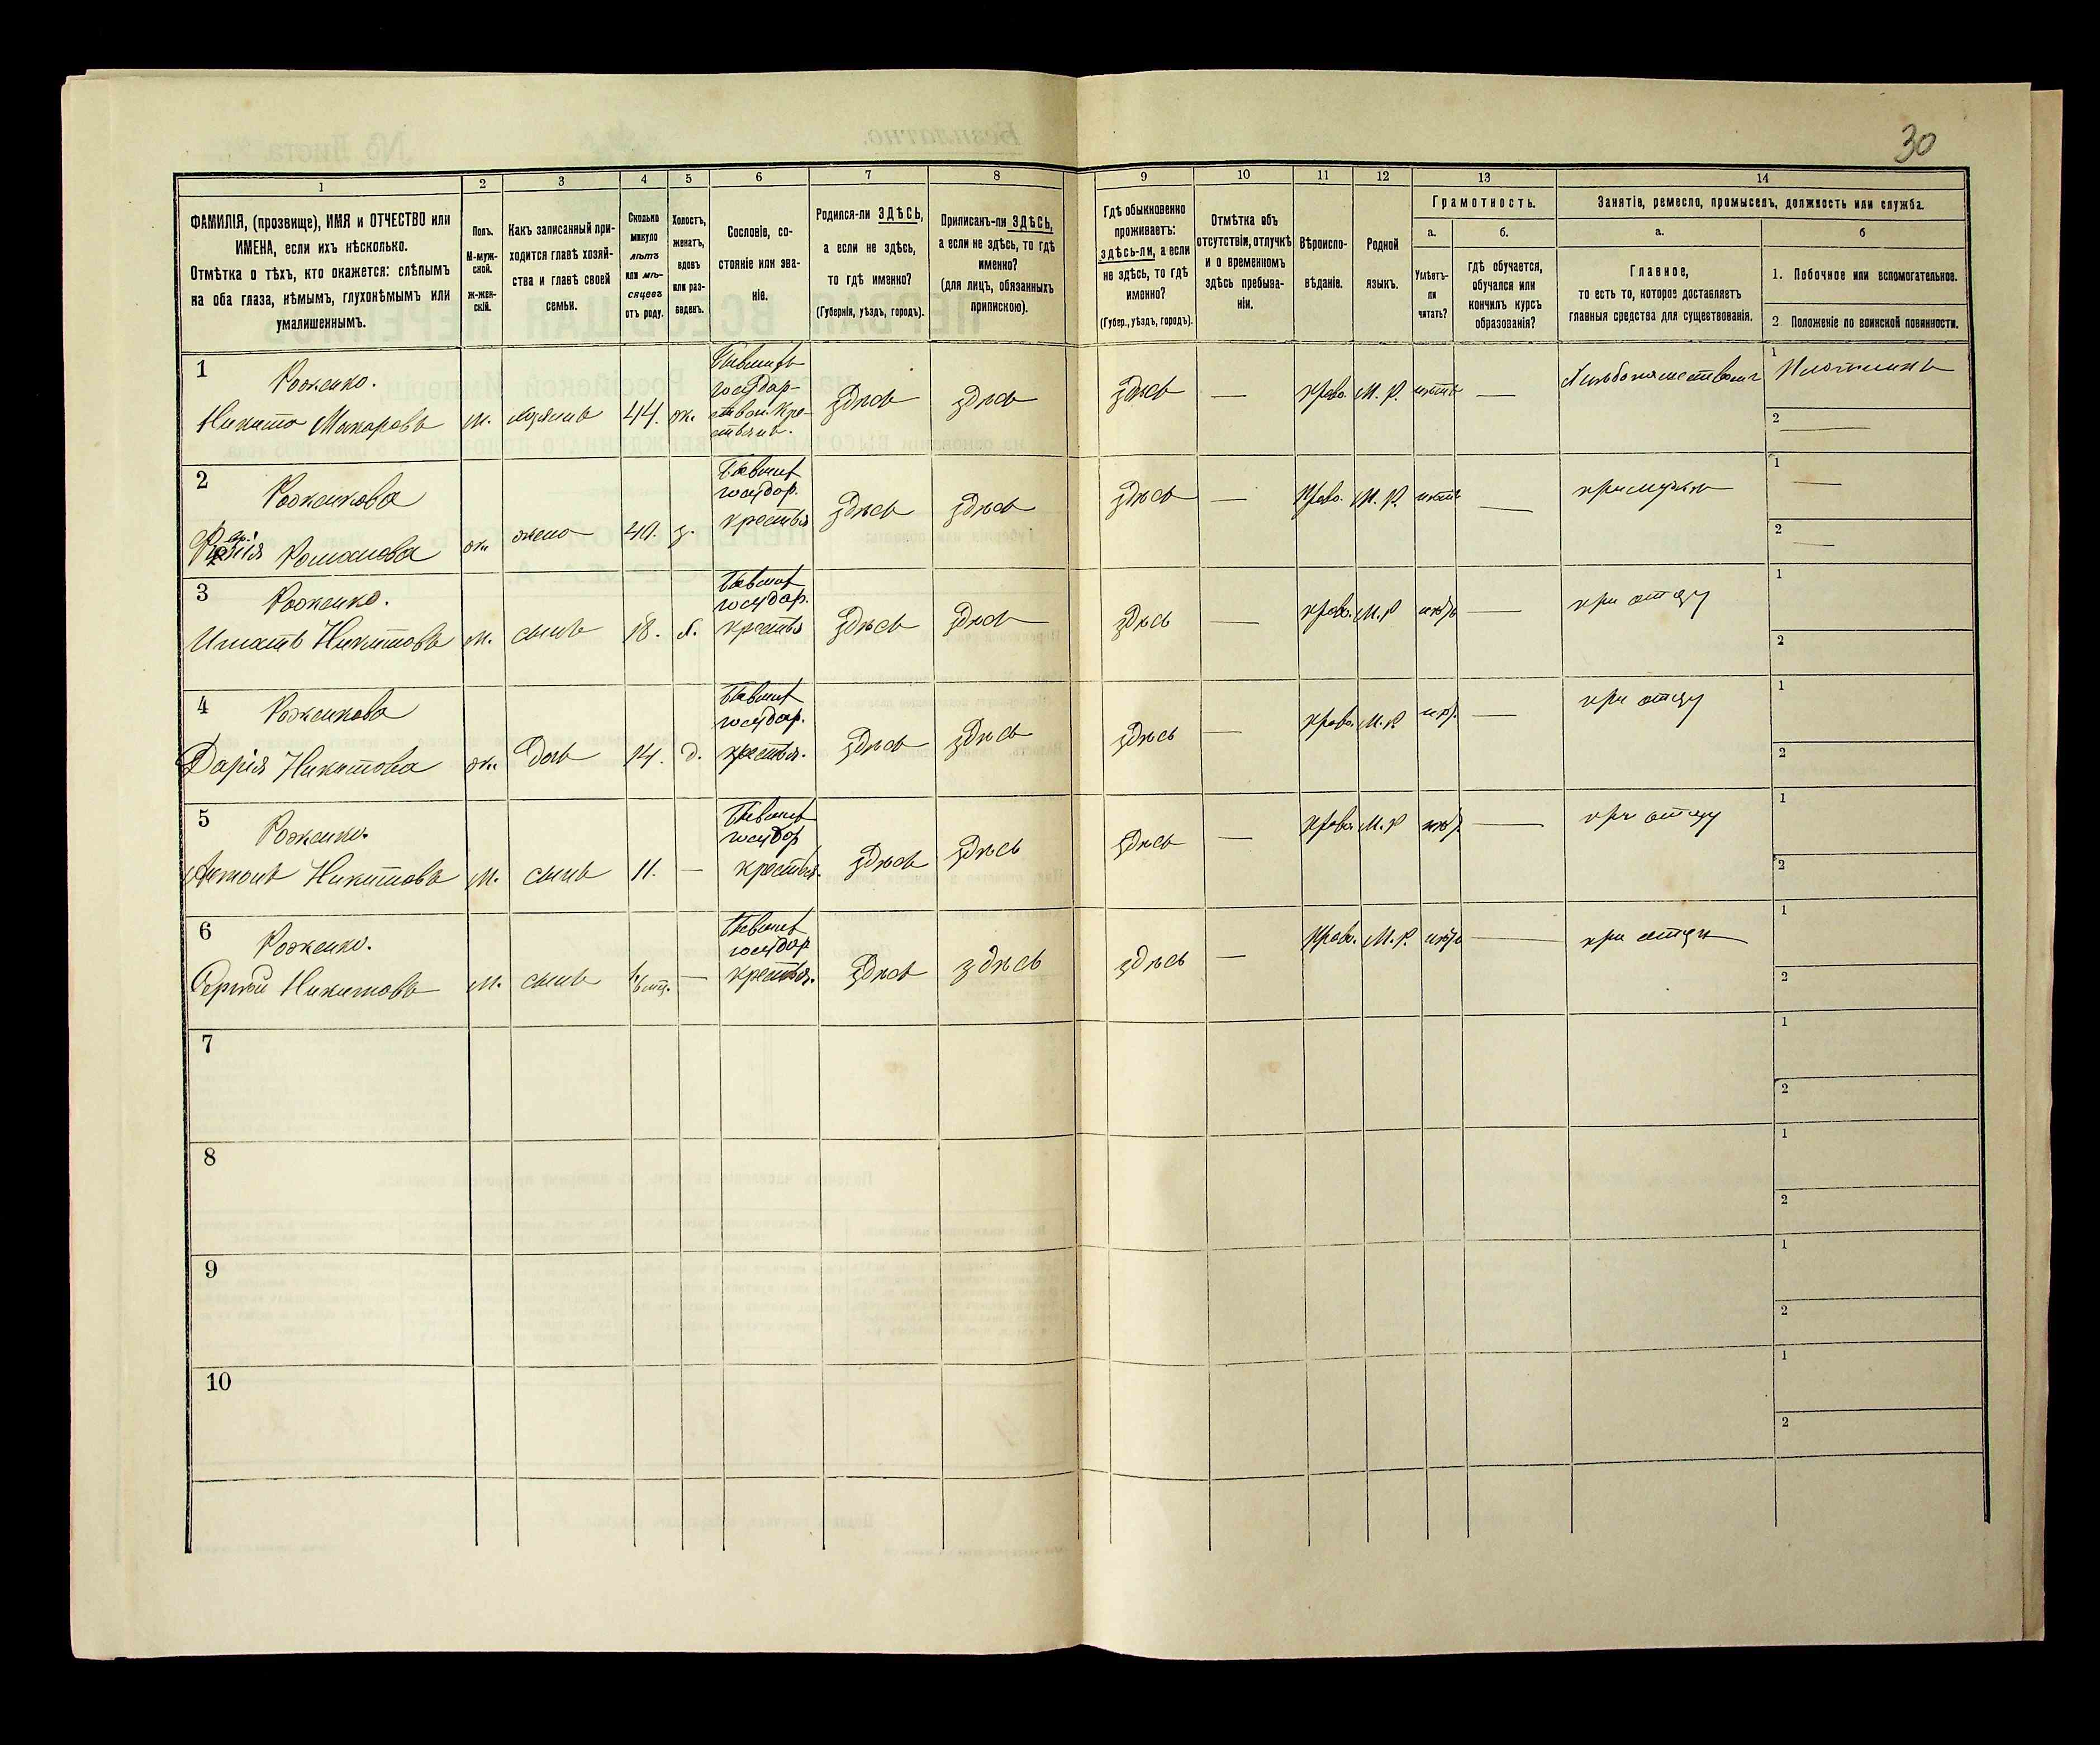 30
1 2 3 4 5 6 7 8 9 10 11 12 13 14
ФАМИЛІЯ, (прозвище), ИМЯ и ОТЧЕСТВО или
ИМЕНА, если ихъ нѣсколько.
Отмѣтка о тѣхъ, кто окажется: слѣпымъ
на оба глаза, нѣмымъ, глухонѣмымъ или
умалишеннымъ.
Полъ.
М-муж-
ской.
Ж-жен-
скій.
Какъ записанный при-
ходится главѣ хозяй-
ства и главѣ своей
семьи.
Сколько
минуло
лѣтъ
или мѣ-
сяцевъ
отъ роду.
Холостъ,
женатъ,
вдовъ
или раз-
веденъ.
Сословіе, со-
стояніе или зва-
ніе.
Родился-ли ЗДѢСЬ,
а если не здѣсь,
то гдѣ именно?
(Губернія, уѣздъ, городъ).
Приписанъ-ли ЗДѢСЬ,
а если не здѣсь, то гдѣ
именно?
(для лицъ, обязанныхъ
припискою).
Гдѣ обыкновенно
проживаетъ:
здѣсь-ли, а если
не здѣсь, то гдѣ
именно?
(Губер., уѣздъ, городъ).
Отмѣтка объ
отсутствіи, отлучкѣ
и о временномъ
здѣсь пребыва-
ніи.
Вѣроиспо-
вѣданіе.
Родной
языкъ.
Грамотность.
а.
Умѣетъ-
ли
читать?
б.
гдѣ обучается,
обучался или
кончилъ курсъ
образованія?
Занятіе, ремесло, промыселъ, должность или служба.
а.
Главное,
то есть то, которое доставляетъ
главныя средства для существованія.
б
1. Побочное или вспомогательное.
2 Положеніе по воинской повинности.
1
Никита Макаровъ м. хозяинъ 44. ж.
здѣсь здѣсь здѣсь — право. М. Р. нѣтъ —
1 Плотникъ
2 —
2
Романова ж. жена 40. з.
государ.
здѣсь здѣсь здѣсь — право. М. Р. нѣтъ — при мужѣ
1 —
2 —
3
Игнатъ Никитовъ м. сынъ 18. х.
государ.
здѣсь здѣсь здѣсь — право. М. Р нѣтъ — при отцу
1
2
4
Дарія Никитова ж. дочь 14. д.
государ.
крестья.
здѣсь здѣсь здѣсь — право. М. Р нѣт. — при отцу
1
2
5
Антонъ Никитовъ м. сынъ 11. —
государ
крестья.
здѣсь здѣсь здѣсь — право. М. Р нѣт. — при отцу
1
2
6
Сергѣй Никитовъ м. сынъ —
государ
крестья.
здѣсь здѣсь здѣсь — право. М. Р. нѣтъ — при отцѣ
1
2
7
1
2
8
1
2
9
1
2
10
1
2